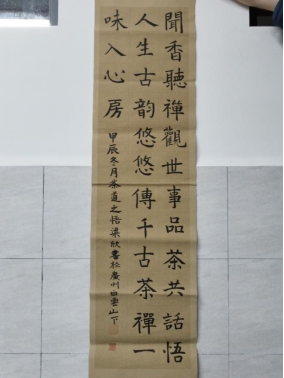 聞香聽禪觀世事品茶共話悟
人生古韵悠悠傳千古茶禪一
味入心房
甲辰冬月茶道之悟梁欣書於廣州白雲山下